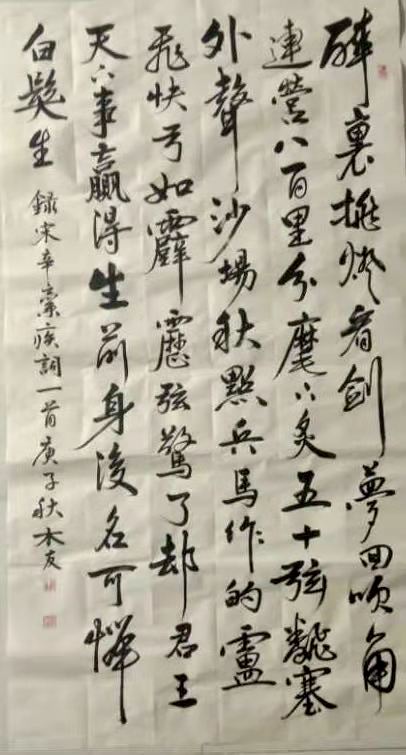 醉裏挑燈看劍夢回吹角
連營八百里分麾下炙五十弦翻塞
外聲沙場秋點兵馬作的盧
飛快弓如霹靂弦驚了却君王
天下事贏得生前身後名可憐
白髮生
錄宋辛棄疾詞一首庚子秋木友